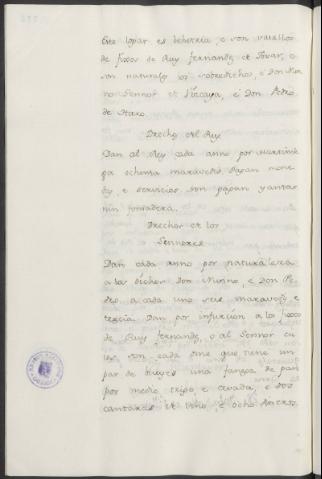 Este logar es behetria, e son vasallos
de fijos de Ruy Fernandez de Tovar, e
son naturales os sobredichos, e Don Nun
no Sennor de Vizcaya, e Don Pedro
de Haro.
Drecho del Rey
Dan al Rey cada anno por Martinie
ga ochenta maravedis. Pagan mone
das e servicios non pagan yantar
nin fonsadera.
Drechos de los
Sennores
Dan cada anno por naturaleza
a los dichos Don Nunno, e Don Pe
dro a cada uno seis maravedis e
tercia. Dan por infurcion a los fijos
de Ruy Fernandez, o al Sennor cu
yos son cada one que tiene un
par de bueyes una fanega de pan
por medio trigo, e cevada, e dos
cantaras de vino, e ocho